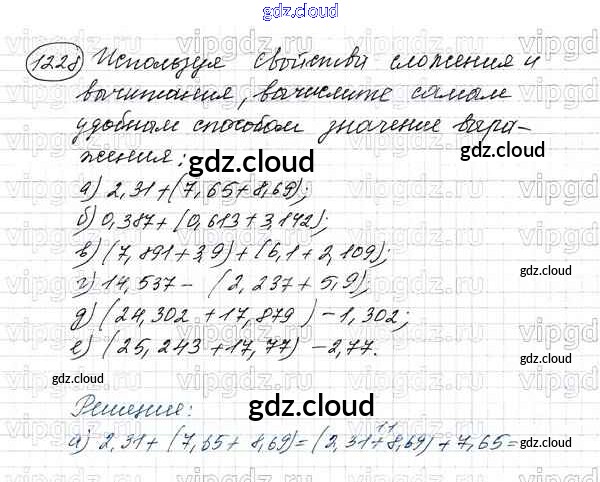 gdz.cloud
1228 Используя свойства сложения и
вычитания, вычислите самым
удобным способом значение выра-
жения:
gdz.cloud
а) 2,31+(7,65+8,69);
б) 0,387+(0,613+3,142);
gdz.cloud
в) (7,891+3,9)+(6,1+2,109);
gdz.cloud
г) 14,537-(2,237+5,9);
д) (24,302+17,879)-1,302;
gdz.cloud
е) (25,243+17,77)-2,77.
gdz.cloud
Решение:
gdz.cloud
11
а) 2,31+(7,65+8,69)=(2,31+8,69)+7,65=
gdz.cloud